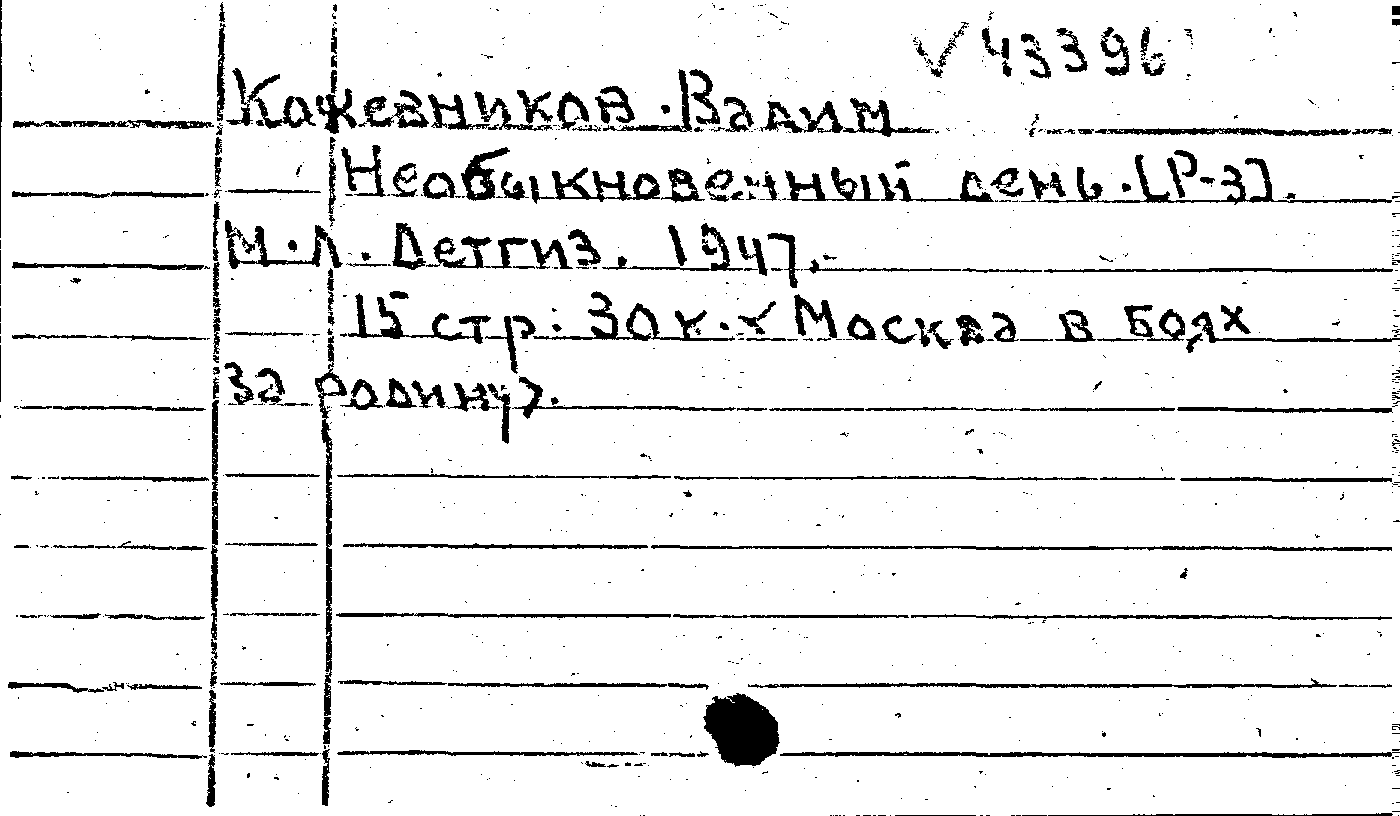 V 43396
Кожевников. Вадим
Необыкновенный день. [Р-з].
М.Л. Детгиз. 1947.-
15 стр. 30 к. < Москва в боях
за родину>.